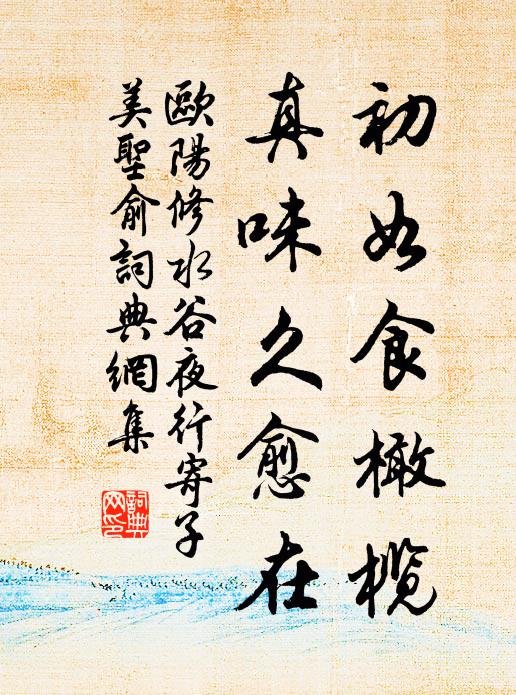 初如食橄榄
真味久愈在
歐陽修水谷夜行寄子
美聖俞詞典網集
詞典
网印